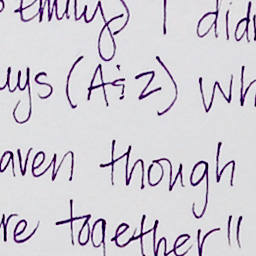 emily) I didn
uys (A&Z) wh
aven though
re together"